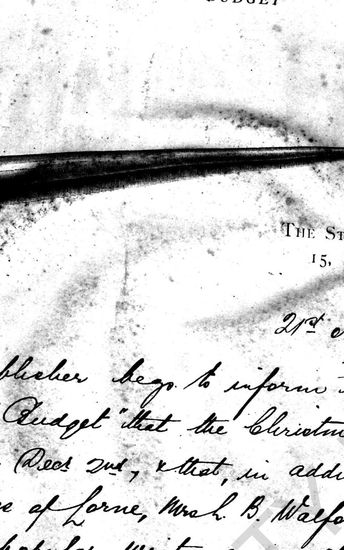 BUDGET
THE ST
15,
21st
blisher begs to inform
Budget" that the Christm
Decr 2nd, & that, in addi
of Lorne, Mrs L. B. Walfo